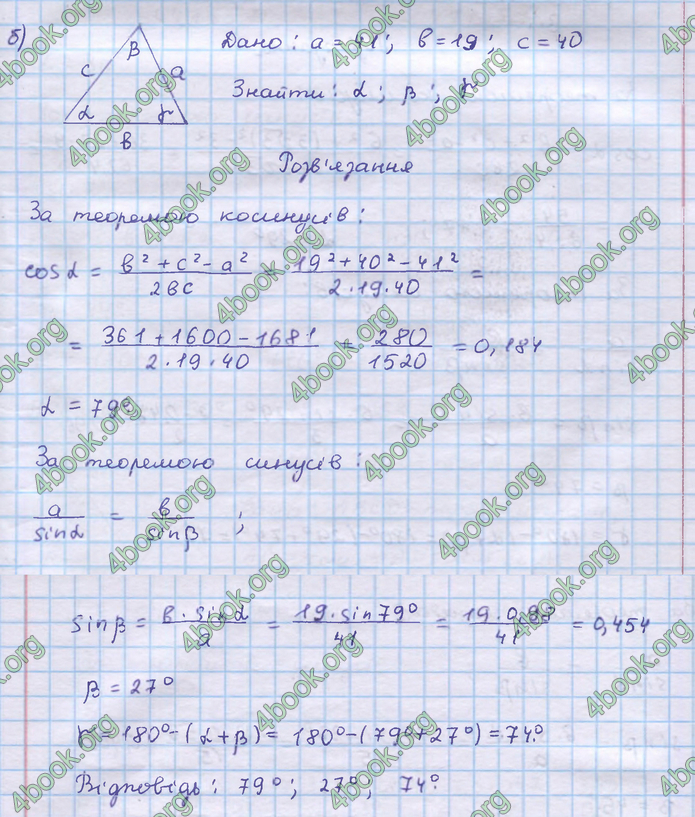 б) Дано: a = 41; b = 19; c = 40
B
c a
α γ
b
Знайти: α; β; γ
Розв'язання
За теоремою косинусів:
cos α = (b² + c² - a²)/(2bc) = (19² + 40² - 41²)/(2·19·40) =
= (361 + 1600 - 1681)/(2·19·40) = 280/1520 = 0,184
α = 79°
За теоремою синусів:
a/sin α = b/sin β;
sin β = (b·sin α)/a = (19·sin 79°)/41 = (19·0,98)/41 = 0,454
β = 27°
γ = 180° - (α + β) = 180° - (79° + 27°) = 74°.
Відповідь: 79°; 27°; 74°.
4book.org